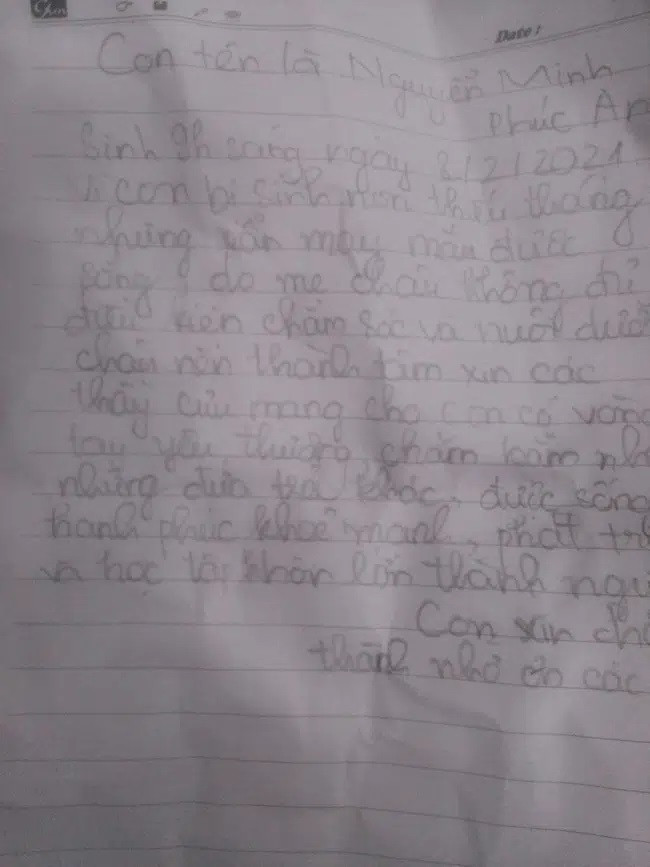 Date:
Con tên là Nguyễn Minh
Phúc An
Sinh 9h sáng ngày 8/2/2021
con bị sinh non thiếu tháng
nhưng vẫn may mắn được
sống do mẹ cháu không đủ
điều kiện chăm sóc và nuôi dưỡ
cháu nên thành tâm xin các
thầy cưu mang cho con có vòng
tay yêu thương chăm bẵm như
những đứa trẻ khác, được sống
hạnh phúc khoẻ mạnh, phát tri
và học tập khôn lớn thành ngư
Con xin ch
thành nhờ ơn các